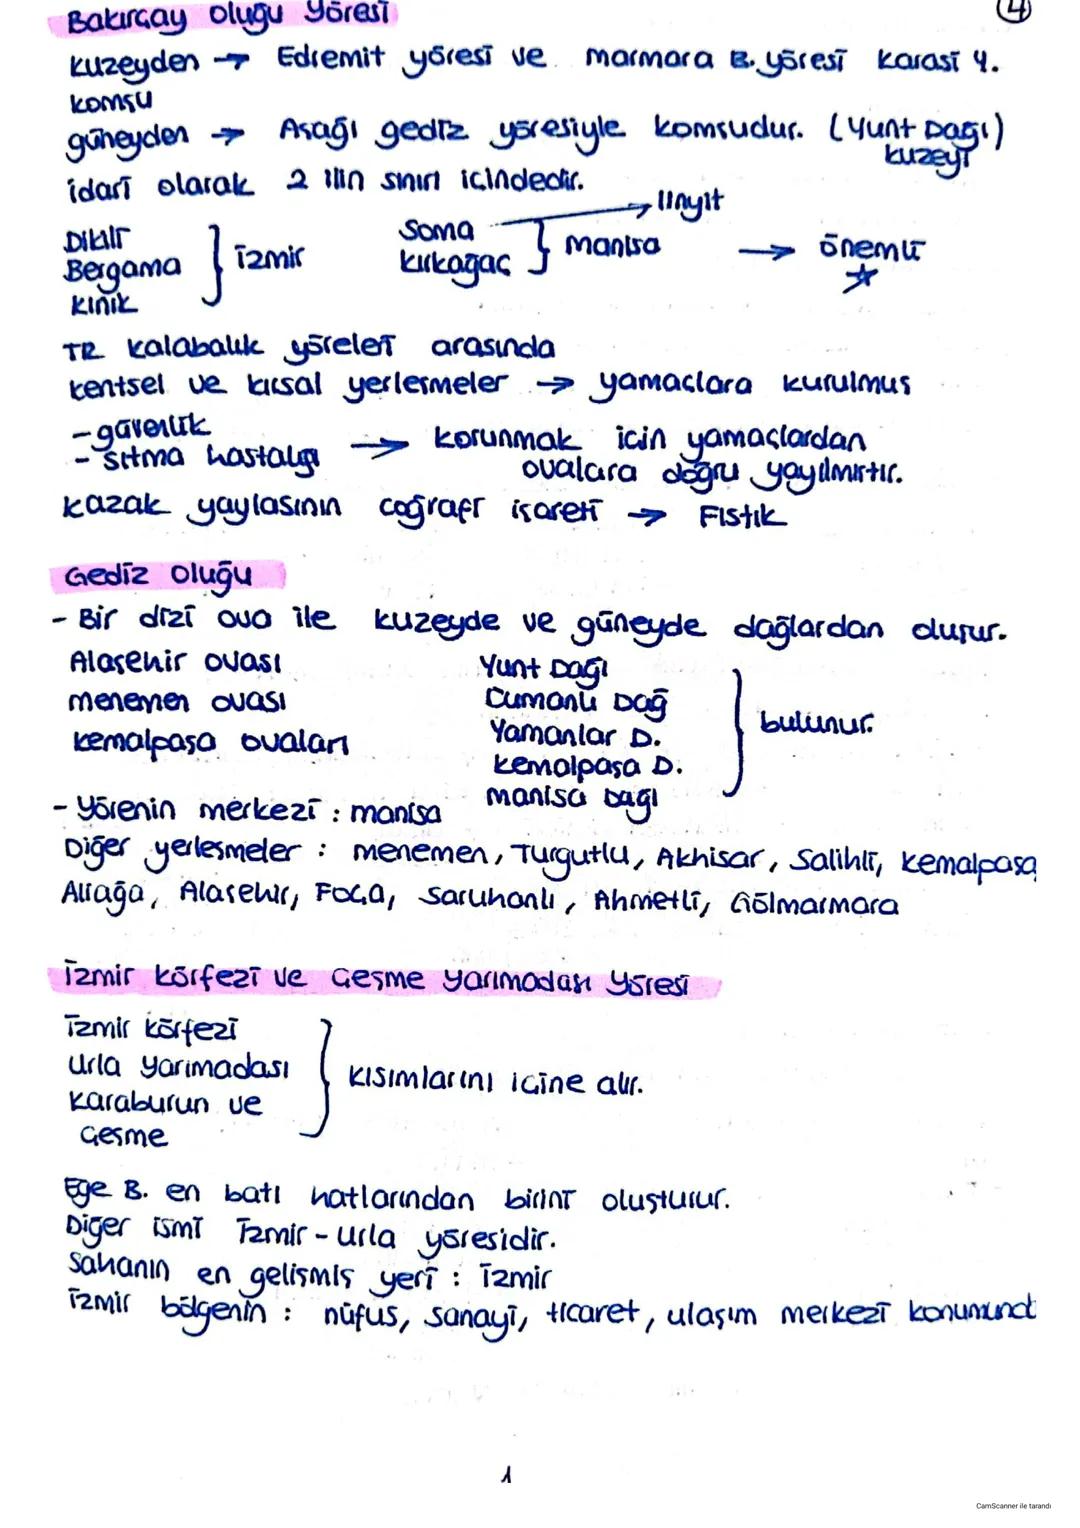 Bakırçay Oluğu Yöresi
4
kuzeyden → Edremit yöresi ve marmara B. yöresi karasi y.
komşu
güneyden → Aşağı gediz yöresiyle komşudur. (Yunt Dağı)
kuzeyi
idari olarak 2 ilin sınırı içindedir.
Dikili
Bergama } izmir
Kınık
Soma → linyit
Kırkağaç } manisa → önemli ☆
TR kalabalık yöreleri arasında
kentsel ve kırsal yerleşmeler → yamaçlara kurulmuş
- güvenlik
- sıtma hastalığı → korunmak için yamaçlardan
ovalara doğru yayılmıştır.
kazak yaylasının coğrafi işareti → Fıstık
Gediz Oluğu
- Bir dizi ova ile kuzeyde ve güneyde dağlardan oluşur.
Alaşehir ovası
menemen ovası
kemalpaşa ovaları
Yunt Dağı
Cumanlı Dağ
Yamanlar D.
kemalpaşa D.
manisa Dağı
} bulunur.
- Yörenin merkezi : manisa
Diğer yerleşmeler : menemen, Turgutlu, Akhisar, Salihli, kemalpaşa
Aliağa, Alaşehir, Foça, Saruhanlı, Ahmetli, Gölmarmara
izmir körfezi ve Çeşme Yarımadası Yöresi
izmir körfezi
Urla yarımadası
karaburun ve
Çeşme
} kısımlarını içine alır.
Ege B. en batı hatlarından birini oluşturur.
Diğer ismi izmir - Urla yöresidir.
Sahanın en gelişmiş yeri : izmir
izmir bölgenin : nüfus, sanayi, ticaret, ulaşım merkezi konumund
1
CamScanner ile tarandı